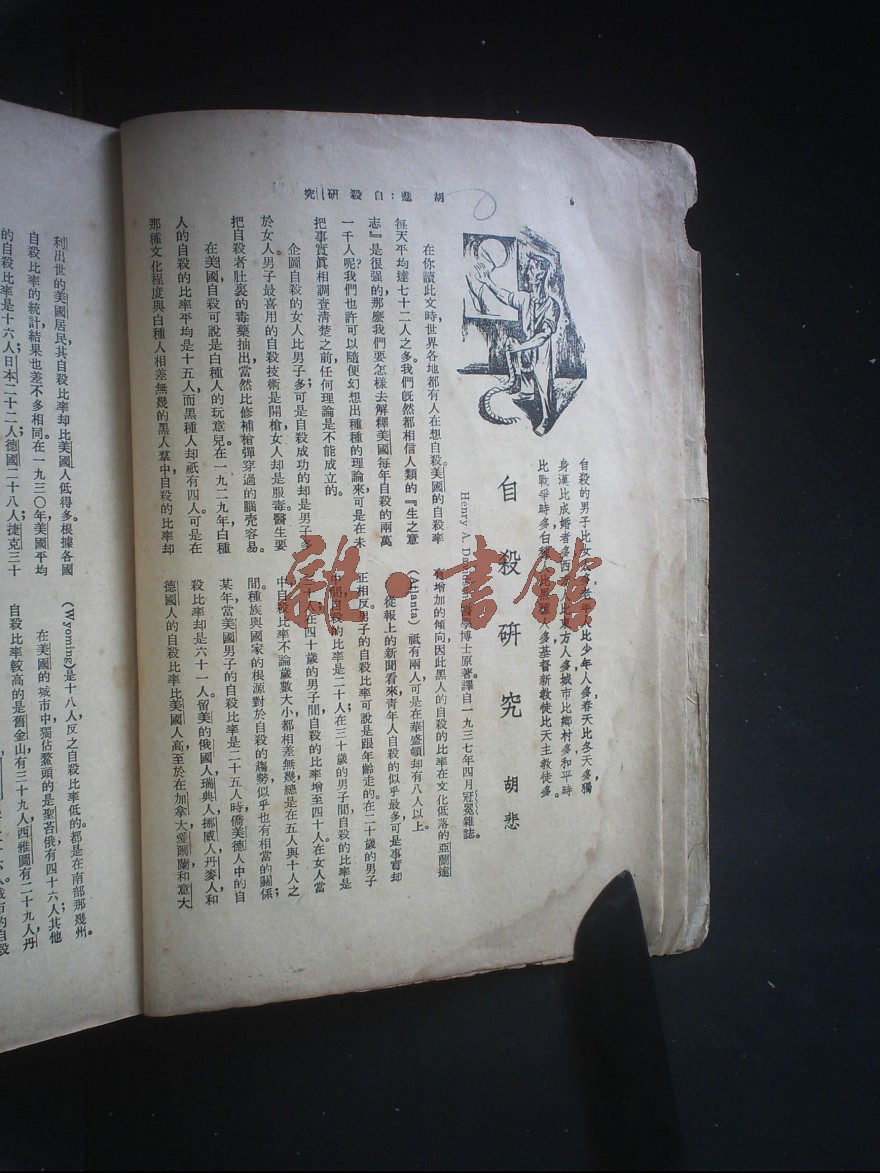 胡悲：自殺研究
自殺的男子比女
比少年人多，春天比冬天多，獨
身漢比成婚者多，西
東方人多，城市比鄉村多，和平時
比戰爭時多，白種
多，基督新教徒比天主教徒多。
自殺研究
胡悲
Henry A. Da
博士原著。譯自一九三七年四月冠冕雜誌。
在你讀此文時，世界各地都有人在想自殺。美國的自殺率
每天平均達七十二人之多。我們旣然都相信人類的『生之意
志』是很强的，那麼我們要怎樣去解釋美國每年自殺的兩萬
一千人呢？我們也許可以隨便幻想出種種的理論來，可是在未
把事實眞相調査清楚之前，任何理論是不能成立的。
企圖自殺的女人比男子多，可是自殺成功的却是男子多
於女人。男子最喜用的自殺技術是開槍，女人却是服毒。醫生要
把自殺者肚裏的毒藥抽出，當然比修補槍彈穿過的腦壳容易。
在美國，自殺可說是白種人的玩意兒。在一九二九年，白種
人的自殺的比率平均是十五人，而黑種人却祇有四人。可是在
那種文化程度與白種人相差無幾的黑人羣中，自殺的比率却
有增加的傾向，因此黑人的自殺的比率在文化低落的亞蘭達
(Atlanta) 祇有兩人，可是在華盛頓却有八人以上。
從報上的新聞看來，靑年人自殺的似乎最多，可是事實却
正相反。男子的自殺比率可說是跟年齡走的。在二十歲的男子
中間，自殺的比率是二十人；在三十歲的男子間自殺的比率是
十人；在四十歲的男子間，自殺的比率增至四十人。在女人當
中，自殺比率不論歲數大小，都相差無幾，總是在五人與十人之
間。種族與國家的根源對於自殺的趨勢似乎也有相當的關係；
某年當美國男子的自殺比率是二十五人時，僑美德人中的自
殺比率却是六十一人。留美的俄國人，瑞典人，挪威人，丹麥人，和
德國人的自殺比率比美國人高，至於在加拿大愛爾蘭和意大
利出世的美國居民，其自殺比率却比美國人低得多。根據各國
自殺比率的統計，結果也差不多相同。在一九三〇年，美國平均
的自殺比率是十六人，日本二十二人，德國二十八人，捷克三十
(Wyoming)是十八人，反之，自殺比率低的都是在南部那幾州。
在美國的城市中，獨佔鰲頭的是聖苔俄，有四十六人，其他
自殺比率較高的是舊金山，有三十九人，西雅圖有二十九人，丹
雜·書館